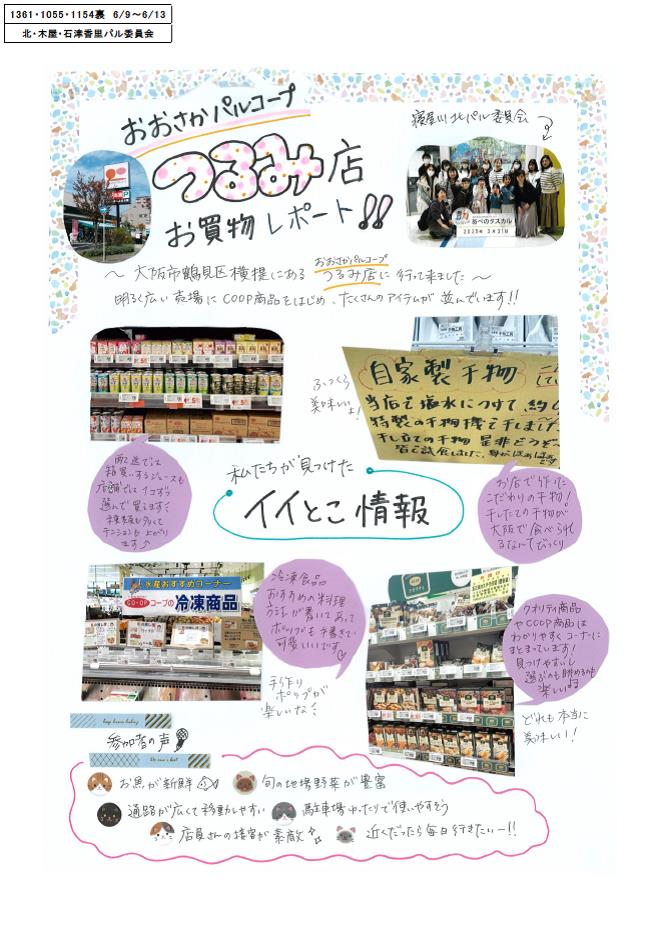 1361・1055・1154裏 6/9～6/13
北・木屋・石津香里パル委員会
おおさかパルコープ
つるみ店
お買物レポート!!
寝屋川北パル委員会
あべのタスカル
2025年3月31日
～大阪市鶴見区横堤にある おおさかパルコープ つるみ店に行って来ました～
明るく広い売場にCOOP商品をはじめ、たくさんのアイテムが並んでいます!!
ふっくら
美味しいよ!
自家製干物
当店で塩水につけて
特製の干物機で干しました
干し立ての干物 是非どうぞ
配送では
箱買いするジュースも
店舗では1コずつ
選んで買えます!
種類も多くて
テンションも上がり
ます♪
私たちが見つけた
イイとこ情報
お店で作った
こだわりの干物!
干したての干物が
大阪で食べられ
るなんてびっくり
水産おすすめコーナー
CO・OP コープの冷凍商品
冷凍食品
おすすめの料理
方法が書いてあって
ポップも手書きで
可愛いいです♡
手作り
ポップが
楽しいな!
クオリティ商品
やCOOP商品は
わかりやすくコーナーに
まとまっています!
見つけやすいし
選ぶのも眺めるのも
楽しい
どれも本当に
美味しい!
参加者の声
お魚が新鮮
旬の地場野菜が豊富
通路が広くて移動しやすい
駐車場ゆったりで使いやすそう
店員さんの接客が素敵
近くだったら毎日行きたいー!!